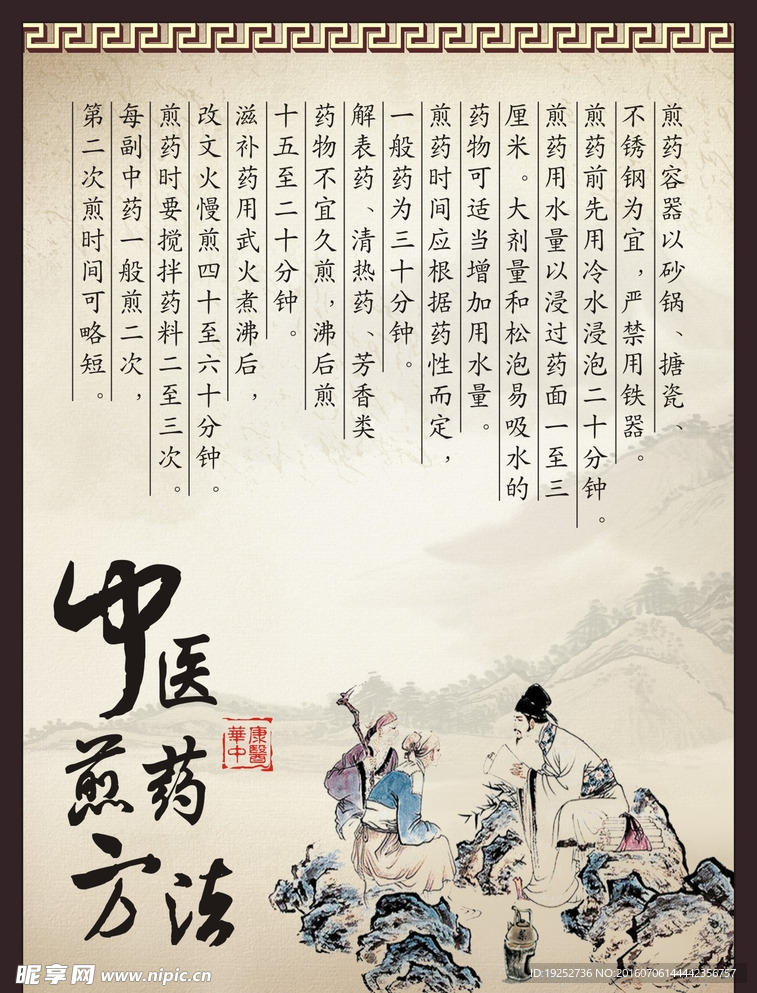 煎药容器以砂锅、搪瓷、
不锈钢为宜，严禁用铁器。
煎药前先用冷水浸泡二十分钟。
煎药用水量以浸过药面一至三
厘米。大剂量和松泡易吸水的
药物可适当增加用水量。
煎药时间应根据药性而定，
一般药为三十分钟。
解表药、清热药、芳香类
药物不宜久煎，沸后煎
十五至二十分钟。
滋补药用武火煮沸后，
改文火慢煎四十至六十分钟。
煎药时要搅拌药料二至三次。
每副中药一般煎二次，
第二次煎时间可略短。
中医
煎药
方法
康醫
華中
昵享网 www.nipic.cn
ID:19252736 NO:20160706144442356757